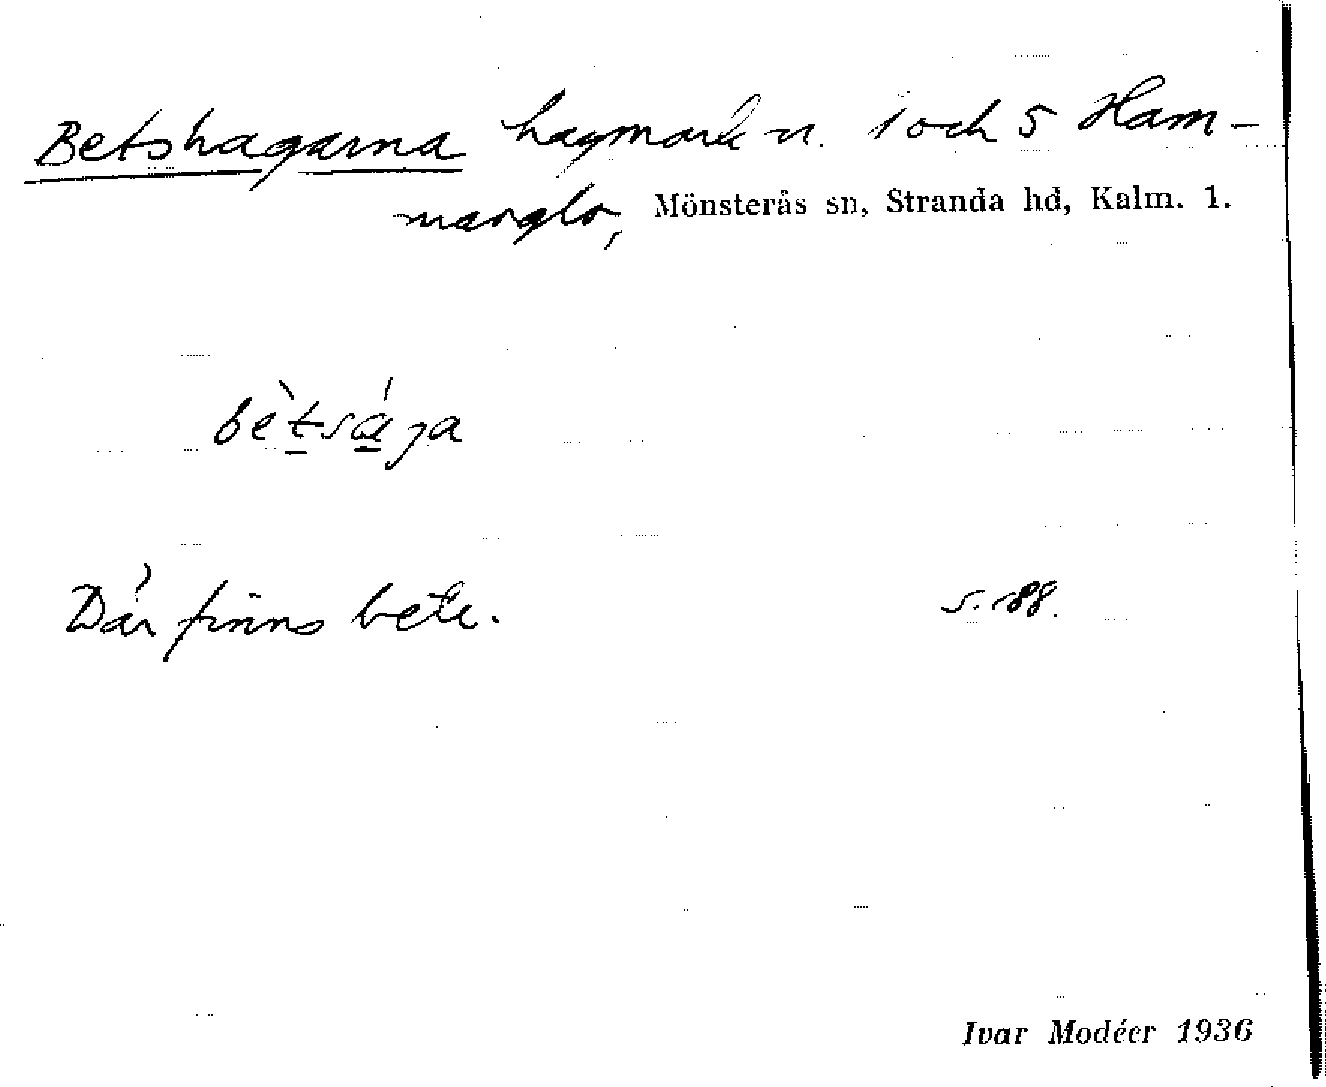 Betshagarna hagmark n. 1 och 5 Ham-
marglo, Mönsterås sn, Stranda hd, Kalm. l.
bètsága
Där finns bete. s. 188.
Ivar Modéer 1936